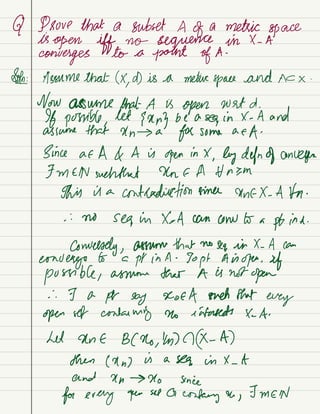 Q Prove that a subset A of a metric space
is open iff no sequence in X-A
converges to a point of A.
Soln: Assume that (X, d) is a metric space and A⊂X.
Now assume that A is open wrt d.
If possible, let {xn} be a seq in X-A and
assume that xn → a for some a∈A.
Since a∈A & A is open in X, by defn of
∃ m∈N such that xn ∈ A ∀ n≥m
This is a contradiction since xn∈X-A ∀n.
∴ no seq in X-A can conv to a pt in A.
Conversely, assume that no seq in X-A can
converge to a pt in A. To pt A is open. If
possible, assume that A is not open
∴ ∃ a pt say x0∈A such that every
open set containing x0 intersects X-A.
Let xn∈ B(x0, 1/n) ∩ (X-A)
then (xn) is a seq in X-A
and xn → x0 since
for every open set G containing x0, ∃ m∈N